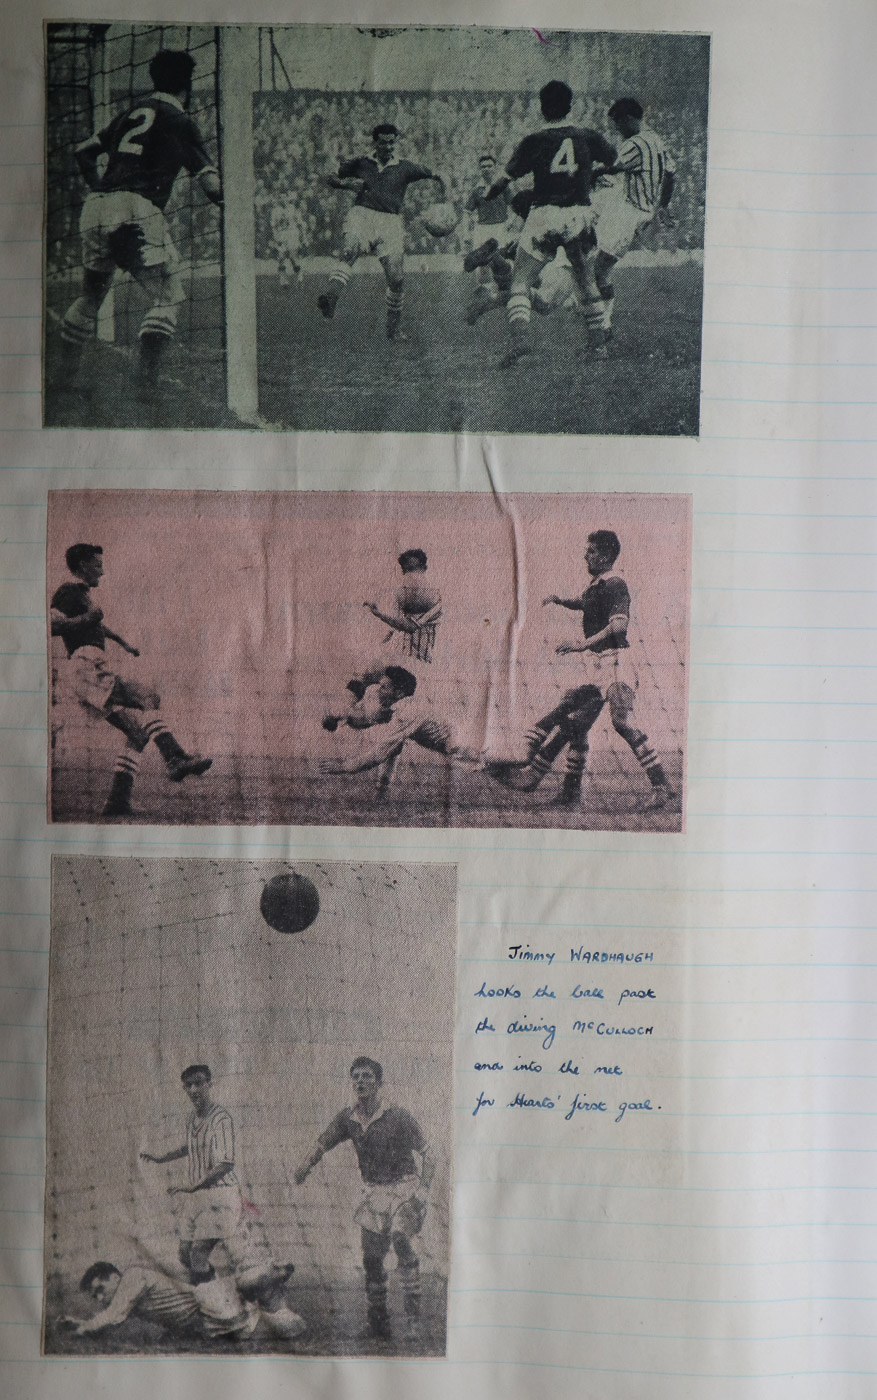 2
4
Jimmy WARDHAUGH
hooks the ball past
the diving McCULLOCH
and into the net
for Hearts' first goal.